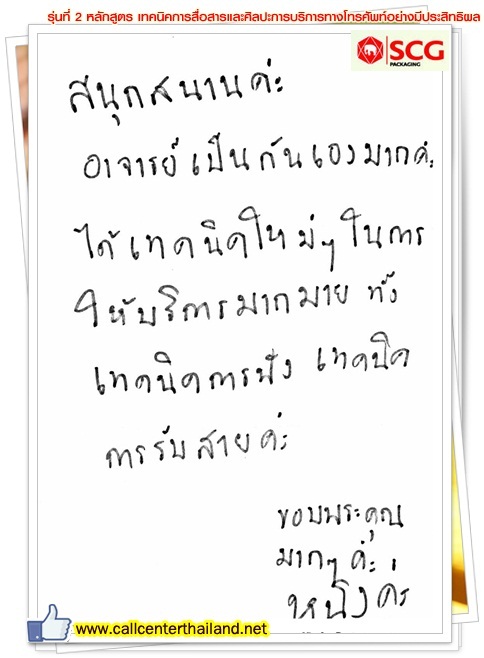 รุ่นที่ 2 หลักสูตร เทคนิคการสื่อสารและศิลปะการบริการทางโทรศัพท์อย่างมีประสิทธิผล
SCG
PACKAGING
สนุกสนานค่ะ
อาจารย์เป็นกันเองมากค่ะ
ได้เทคนิคใหม่ๆในการ
ให้บริการมากมาย ทั้ง
เทคนิคการฟัง เทคนิค
การรับสายค่ะ
ขอบพระคุณ
มากๆค่ะ
หนิงค่ะ
www.callcenterthailand.net